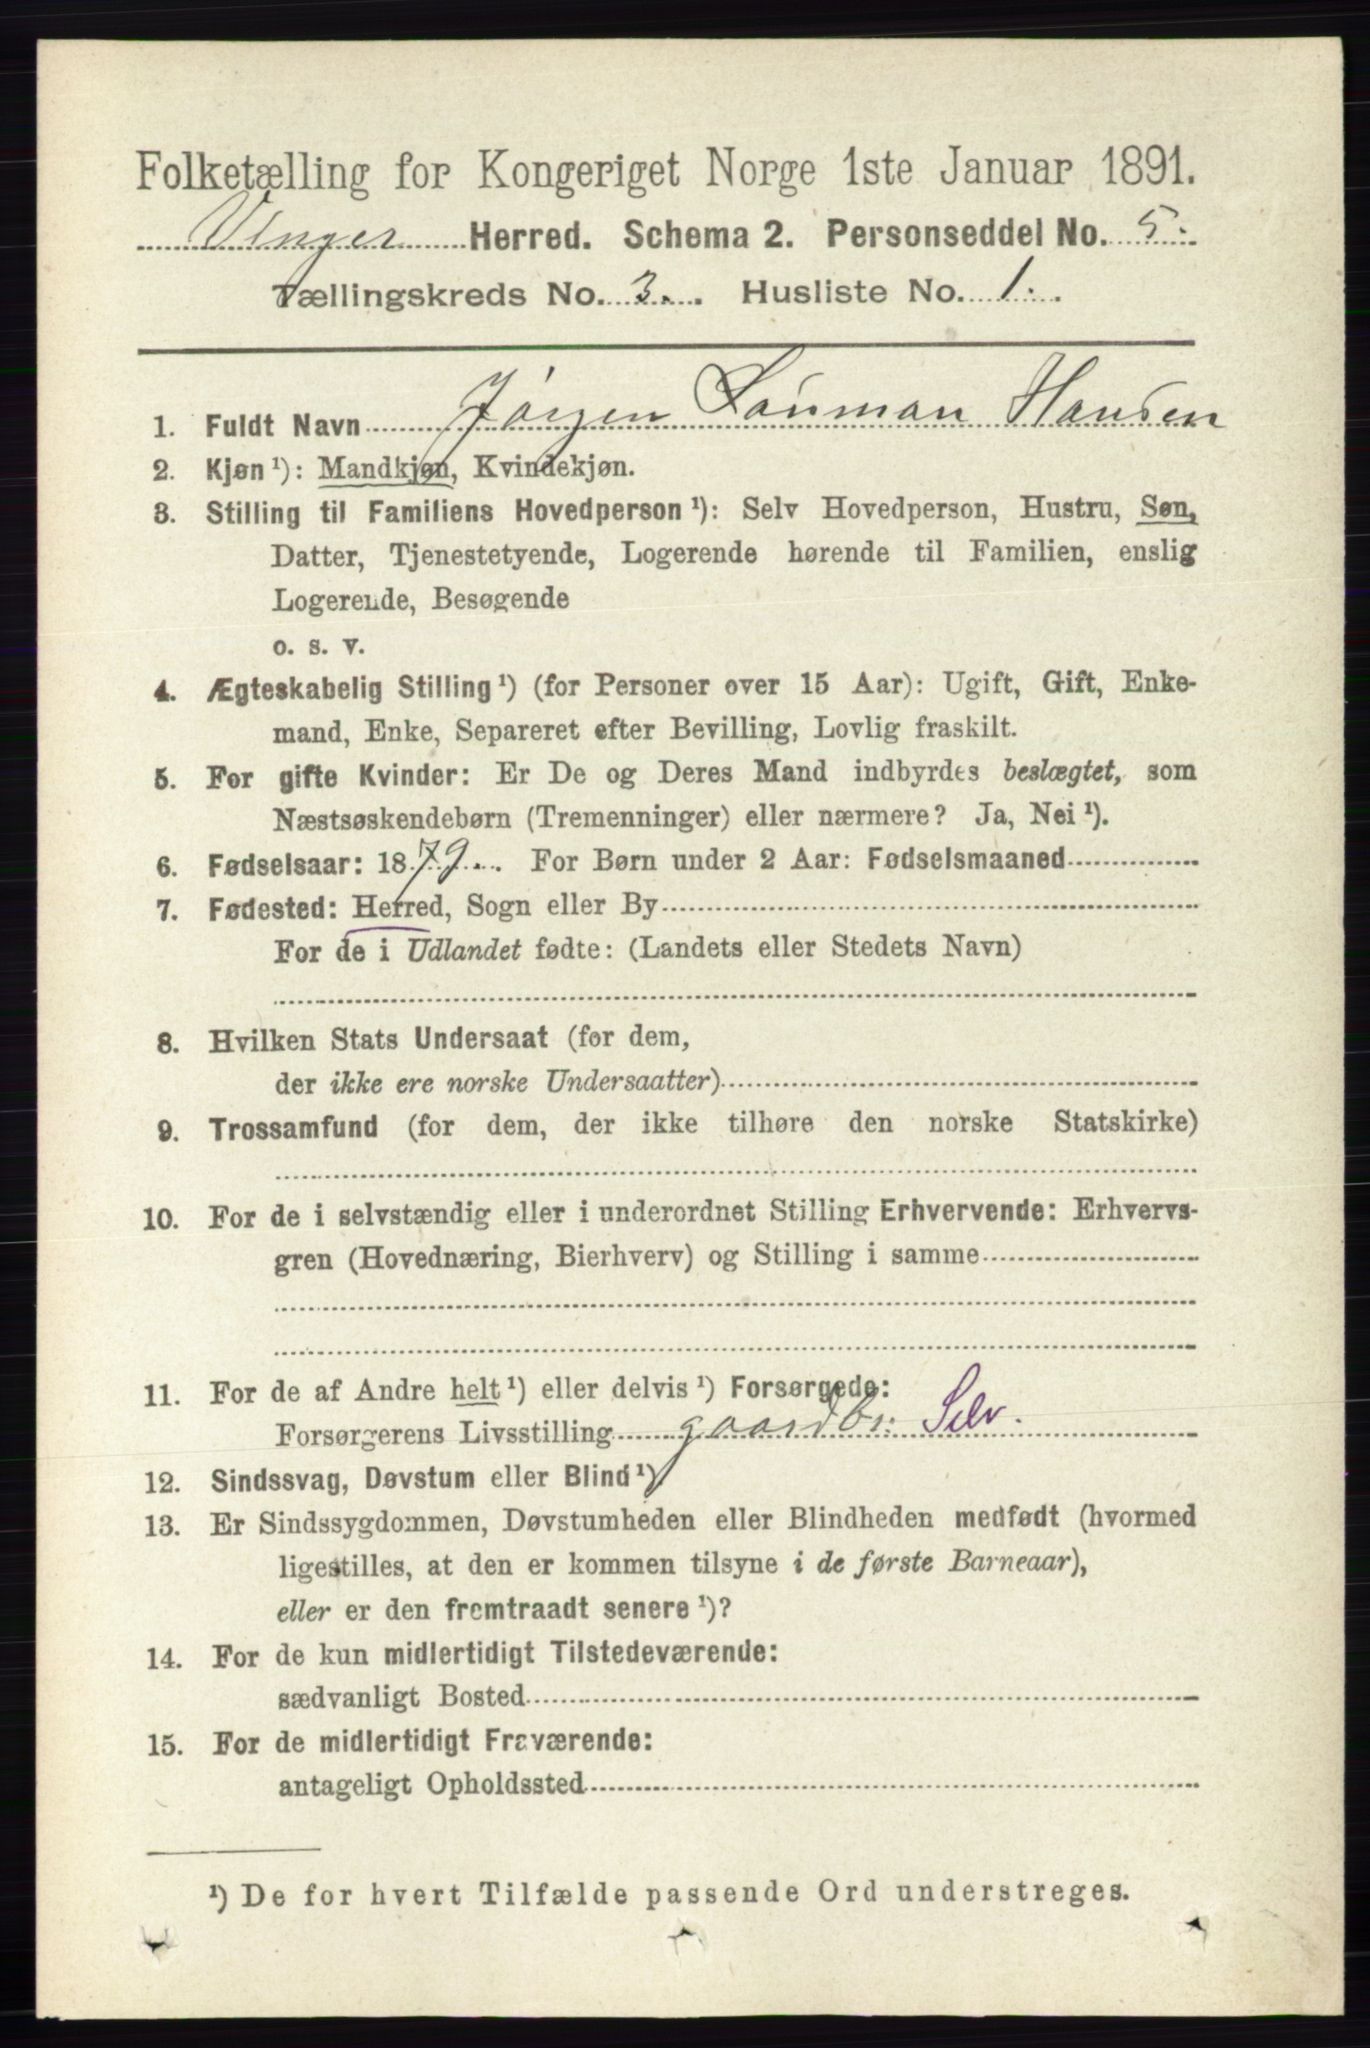 Folketælling for Kongeriget Norge 1ste Januar 1891.
Vinger Herred. Schema 2. Personseddel No. 5.
Tællingskreds No. 3. Husliste No. 1.
1. Fuldt Navn Jörgen Hansen
2. Kjøn¹): Mandkjøn, Kvindekjøn.
3. Stilling til Familiens Hovedperson¹): Selv Hovedperson, Hustru, Søn,
Datter, Tjenestetyende, Logerende hørende til Familien, enslig
Logerende, Besøgende
o. s. v.
4. Ægteskabelig Stilling¹) (for Personer over 15 Aar): Ugift, Gift, Enke-
mand, Enke, Separeret efter Bevilling, Lovlig fraskilt.
5. For gifte Kvinder: Er De og Deres Mand indbyrdes beslægtet, som
Næstsøskendebørn (Tremenninger) eller nærmere? Ja, Nei¹).
6. Fødselsaar: 1879. For Børn under 2 Aar: Fødselsmaaned
7. Fødested: Herred, Sogn eller By
For de i Udlandet fødte: (Landets eller Stedets Navn)
8. Hvilken Stats Undersaat (for dem,
der ikke ere norske Undersaatter)
9. Trossamfund (for dem, der ikke tilhøre den norske Statskirke)
10. For de i selvstændig eller i underordnet Stilling Erhvervende: Erhvervs-
gren (Hovednæring, Bierhverv) og Stilling i samme
11. For de af Andre helt¹) eller delvis¹) Forsørgede:
Forsørgerens Livsstilling gaardbr. Selv.
12. Sindssvag, Døvstum eller Blind¹)
13. Er Sindssygdommen, Døvstumheden eller Blindheden medfødt (hvormed
ligestilles, at den er kommen tilsyne i de første Barneaar),
eller er den fremtraadt senere¹)?
14. For de kun midlertidigt Tilstedeværende:
sædvanligt Bosted
15. For de midlertidigt Fraværende:
antageligt Opholdssted
¹) De for hvert Tilfælde passende Ord understreges.